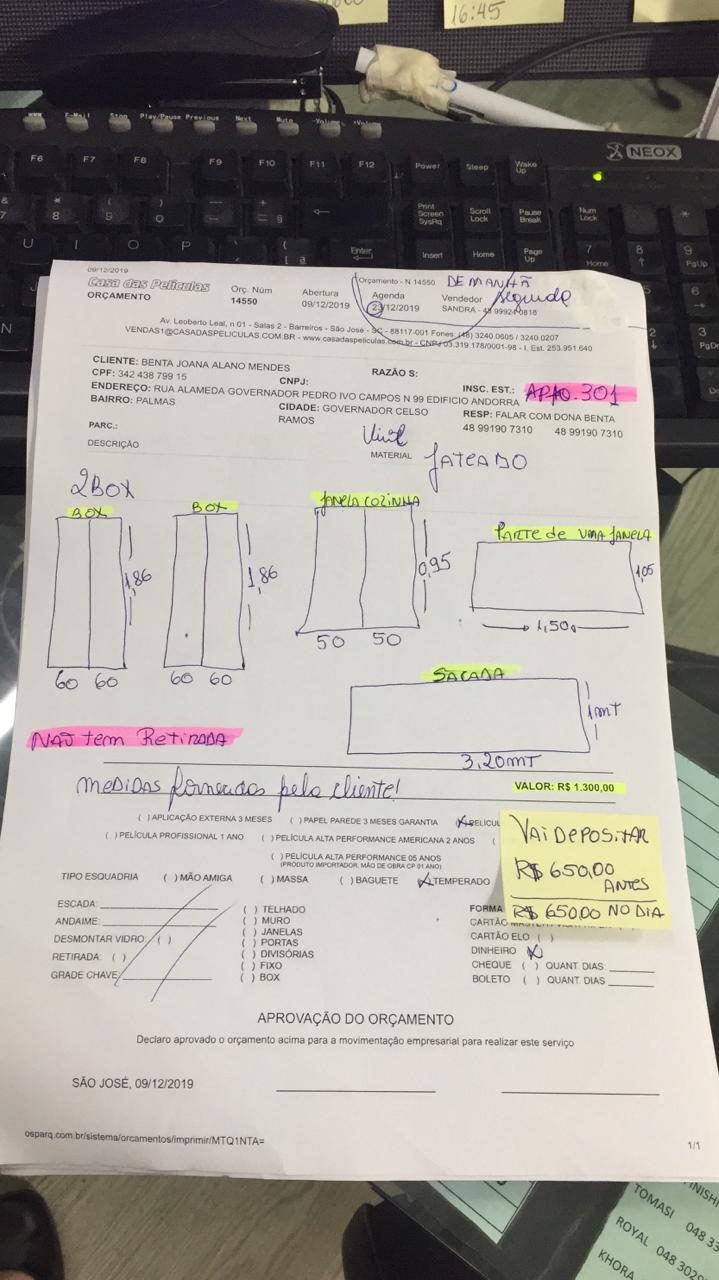 16:45
WWW E-Mail Stop Play/Pause Previous Next Mute -Volume +Volume
F6 F7 F8 F9 F10 F11 F12 Power Sleep Wake Up
NEOX
Print Screen SysRq Scroll Lock Pause Break Num Lock
U I O P Enter Insert Home Page Up 7 Home 8 9 PgUp
09/12/2019
Casa das Películas
ORÇAMENTO
Orç. Núm
14550
Abertura
09/12/2019
Orçamento - N 14550
Agenda
23/12/2019
DE MANHÃ
Vendedor segunda
SANDRA - 48 99924 0818
Av. Leoberto Leal, n 01 - Salas 2 - Barreiros - São José - SC - 88117-001 Fones: (48) 3240.0605 / 3240.0207
VENDAS1@CASADASPELICULAS.COM.BR - www.casadaspeliculas.com.br - CNPJ 03.319.178/0001-98 - I. Est. 253.951.640
CLIENTE: BENTA JOANA ALANO MENDES RAZÃO S:
CPF: 342 438 799 15 CNPJ: INSC. EST.: APTO. 301
ENDEREÇO: RUA ALAMEDA GOVERNADOR PEDRO IVO CAMPOS N 99 EDIFICIO ANDORRA
BAIRRO: PALMAS CIDADE: GOVERNADOR CELSO RAMOS RESP: FALAR COM DONA BENTA
48 99190 7310 48 99190 7310
PARC.: Vinil
DESCRIÇÃO MATERIAL JATEADO
2BOX
BOX BOX JANELA COZINHA PARTE de UMA JANELA
1,86 1,86 0,95 1,05
60 60 60 60 50 50 1,50
SACADA
1mT
3,20mT
NÃO tem Retirada
MEDIDAS fornecidas pelo cliente!
VALOR: R$ 1.300,00
( ) APLICAÇÃO EXTERNA 3 MESES ( ) PAPEL PAREDE 3 MESES GARANTIA (X) PELÍCUL
( ) PELÍCULA PROFISSIONAL 1 ANO ( ) PELÍCULA ALTA PERFORMANCE AMERICANA 2 ANOS (
( ) PELÍCULA ALTA PERFORMANCE 05 ANOS
(PRODUTO IMPORTADOR, MÃO DE OBRA CP 01 ANO)
TIPO ESQUADRIA ( ) MÃO AMIGA ( ) MASSA ( ) BAGUETE (X) TEMPERADO
VAI DEPOSITAR
R$ 650,00
ANTES
R$ 650,00 NO DIA
ESCADA:
ANDAIME:
DESMONTAR VIDRO: ( )
RETIRADA: ( )
GRADE CHAVE:
( ) TELHADO
( ) MURO
( ) JANELAS
( ) PORTAS
( ) DIVISÓRIAS
( ) FIXO
( ) BOX
FORMA
CARTÃO
CARTÃO ELO ( )
DINHEIRO (X)
CHEQUE ( ) QUANT DIAS:
BOLETO ( ) QUANT DIAS
APROVAÇÃO DO ORÇAMENTO
Declaro aprovado o orçamento acima para a movimentação empresarial para realizar este serviço
SÃO JOSÉ, 09/12/2019
osparq.com.br/sistema/orcamentos/imprimir/MTQ1NTA=
1/1
TOMASI 048 33
ROYAL 048 302
KHORA